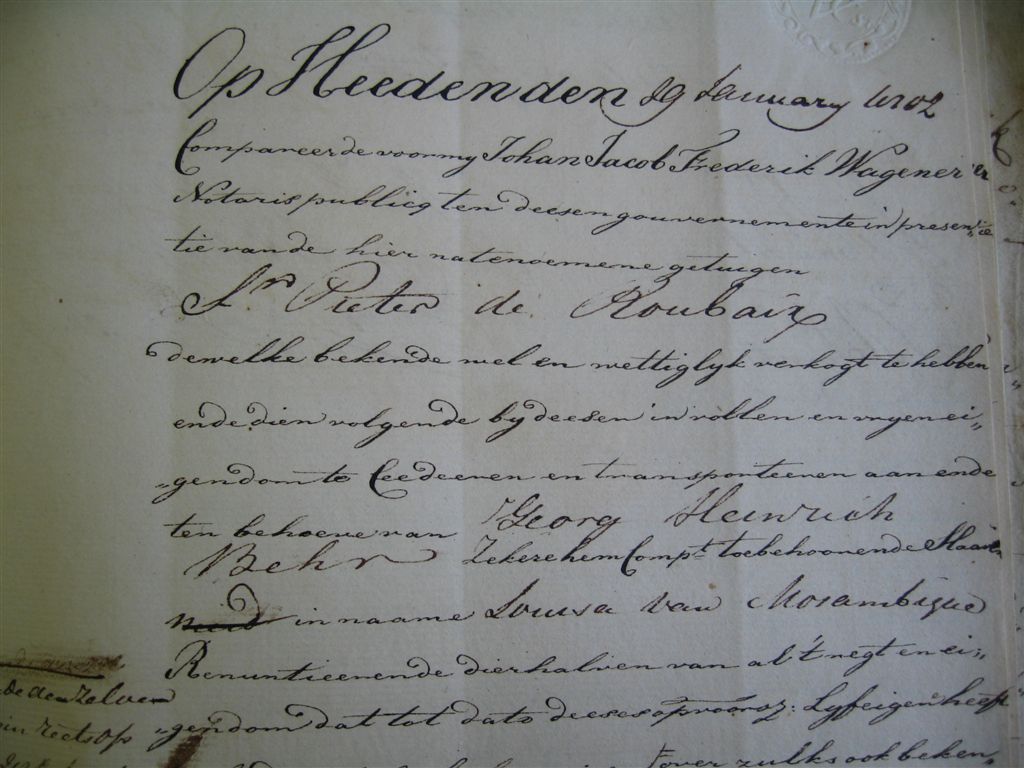 Op Heeden den 29 January 1802
Compareerde voor my Johan Jacob Frederik Wagener
Notaris publicq ten deesen gouvernemente in presen„
tie van de hier natenoemene getuigen
Sr. Pieter de Roubaix
dewelke bekende wel en wettiglyk verkogt te hebben
ende dien volgende by deesen in vollen en vryen ei„
„gendom te Ceedeeren en transporteeren aan ende
ten behoeve van Georg Heinrich
Behr Zekere hem Compt. toebehoorende Slaaven
in naame Louisa van Mosambique
Renuntieerende dierhalven van al 't regt en ei„
„gendom dat tot dato deeses op voorsz: Lyfeigen heeft
over zulks ook beken„
de den zelven